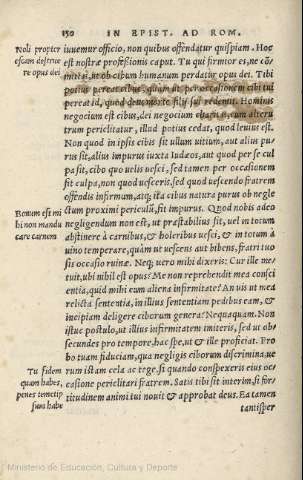 150 IN EPIST. AD ROM.
Noli propter
escam destrue
re opus dei
iuuemur officio, non quibus offendatur quispiam. Hoc
est nostræ professionis caput. Tu qui firmior es, ne cō
mittas, ut ob cibum humanum perdatur opus dei. Tibi
potius pereat cibus, quàm ut per occasionem cibi tui
pereat id, quod
Hominis
negocium est cibus, dei negocium
cum alteru
trum periclitatur, illud potius cedat, quod leuius est.
Non quod in ipsis cibis sit ullum uitium, aut alius pu=
rus sit, alius impurus iuxta Iudæos, aut quod per se cul
pa sit, cibo quouelis uesci, sed tamen per occasionem
fit culpa, non quod uesceris, sed quod uescendo fratrem
offendis infirmum, atq; ita cibus natura purus ob negle
Bonum est mi
hi non mandu
care carnem
ctum proximi periculū, fit impurus. Quod nobis adeo
negligendum non est, ut præstabilius sit, uel in totum
abstinere à carnibus, & holeribus uesci, & in totum à
uino temperare, quàm ut uescens aut bibens, fratri tuo
sis occasio ruinæ. Neq; uero mihi dixeris: Cur ille me=
tuit, ubi nihil est opus? Me non reprehendit mea consci
entia, quid mihi cum aliena infirmitate? An uis ut mea
relicta sententia, in illius sententiam pedibus eam, &
incipiam deligere ciborum genera? Nequaquam. Non
istuc postulo, ut illius infirmitatem imiteris, sed ut ob=
secundes pro tempore, hac spe, ut & ille proficiat. Pro
bo tuam fiduciam, qua negligis ciborum discrimina, ue
Tu fidem
quam habes,
penes temetip
sum habe
rum istam cela ac tege, si quando conspexeris eius oc=
casione periclitari fratrem. Satis tibi sit interim, si for=
titudinem animi tui nouit & approbat deus. Ea tamen
tantisper
Ministerio de Educación, Cultura y Deporte